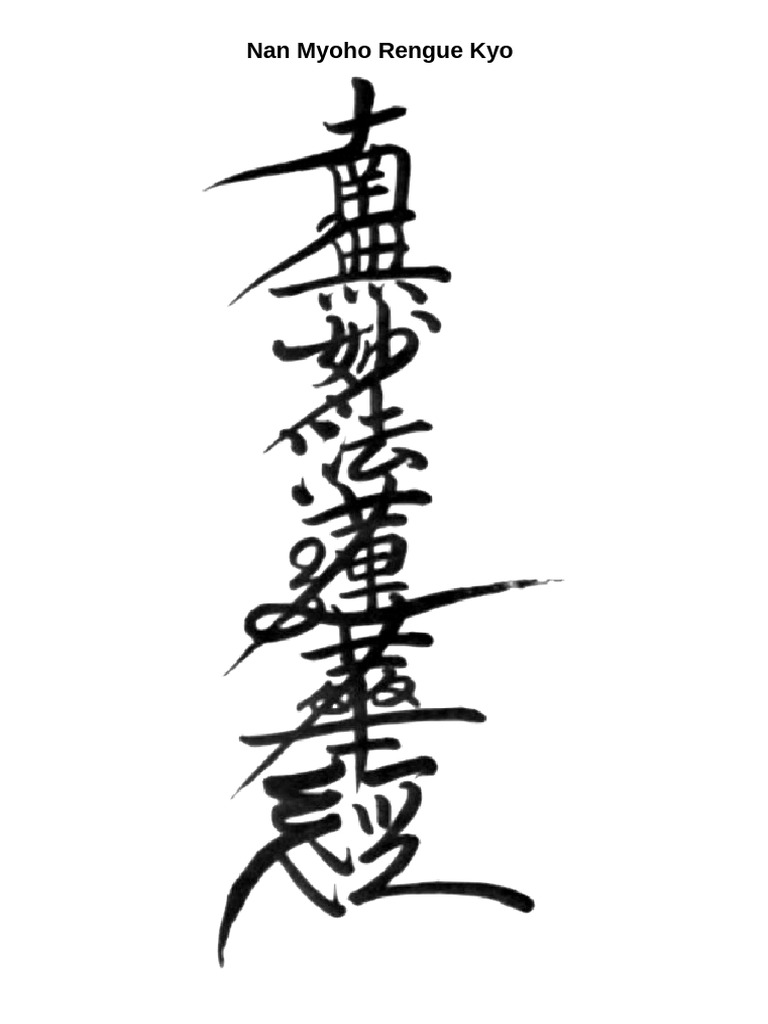 Nan Myoho Rengue Kyo
南無妙法蓮華経